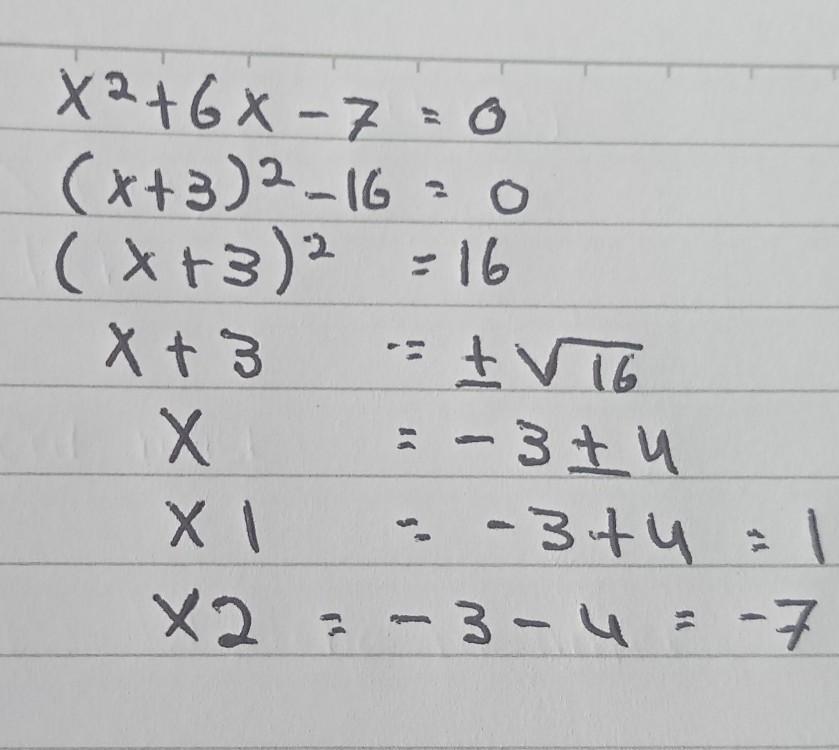 x² + 6x - 7 = 0
(x+3)² - 16 = 0
(x+3)² = 16
x + 3 = ± √16
x = -3 ± 4
x1 = -3+4 = 1
x2 = -3-4 = -7